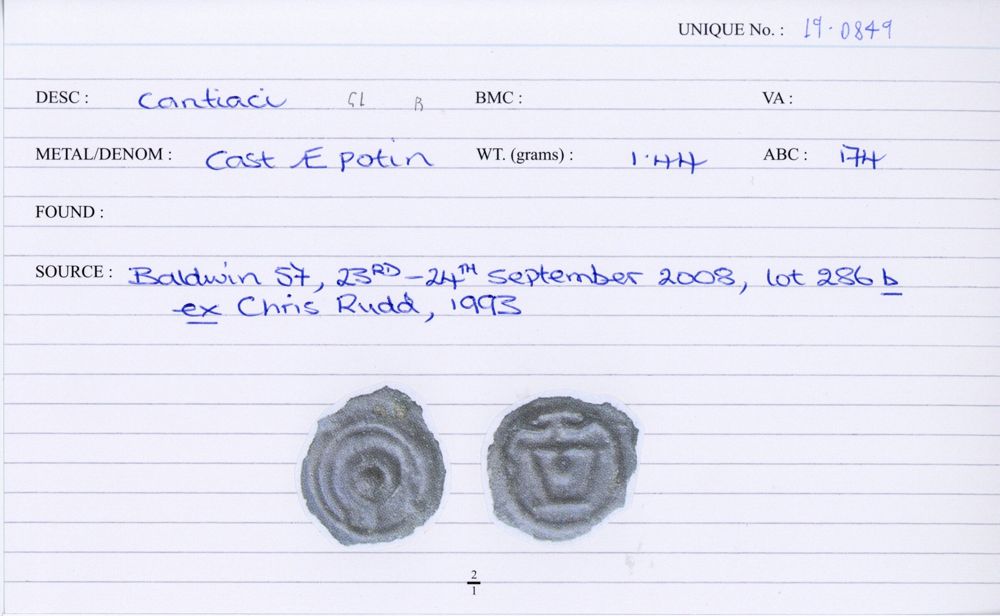 UNIQUE No. : 19·0849
DESC : Cantiaci GL B BMC : VA :
METAL/DENOM : Cast Æ potin WT. (grams) : 1·44 ABC : 174
FOUND :
SOURCE : Baldwin 57, 23RD-24TH September 2008, lot 286 b
ex Chris Rudd, 1993
2
1